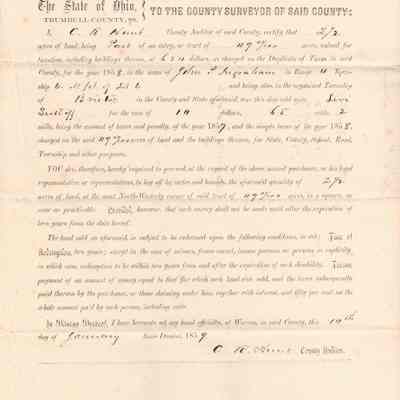 The State of Ohio,
TRUMBULL COUNTY, ss.
TO THE COUNTY SURVEYOR OF SAID COUNTY:
I, County Auditor of said County, certify that 2½
acres of land, being Part of an entry, or tract of 49 acres, valued for
taxation, including buildings thereon, at dollars, as charged on the Duplicate of Taxes in said
County, for the year 1858, in the name of John in Range Town-
ship and being also in the organized Township
of Bristol in the County and State aforesaid, was this day sold unto
for the sum of 10 dollars, 65 cents, 2
mills, being the amount of taxes and penalty, of the year 1857, and the simple taxes of the year 1858,
charged on the said 49 acres of land and the buildings thereon, for State, County, School, Road,
Township and other purposes.
YOU are, therefore, hereby required to proceed, at the request of the above named purchaser, or his legal
representative or representatives, to lay off by metes and bounds, the aforesaid quantity of 2½
acres of land, at the most North Westerly corner of said tract of 49 acres, in a square, as
near as practicable: Provided, however, that such survey shall not be made until after the expiration of
two years from the date hereof.
The land sold as aforesaid, is subject to be redeemed upon the following conditions, to wit: Time of
Redemption, two years; except in the case of minors, femes covert, insane persons or persons in captivity,
in which case, redemption to be within two years from and after the expiration of such disability. Terms,
payment of an amount of money equal to that for which such land was sold, and the taxes subsequently
paid thereon by the purchaser, or those claiming under him, together with interest, and fifty per cent on the
whole amount paid by such person, including costs.
In Witness Whereof, I have hereunto set my hand officially, at Warren, in said County, this 19th
day of January Anno Domini, 1859
County Auditor.